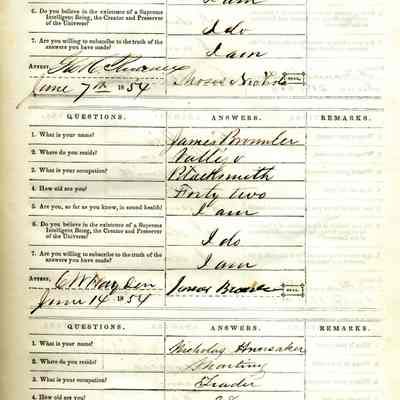 I am
6. Do you believe in the existence of a Supreme
Intelligent Being, the Creator and Preserver
of the Universe?
I do
7. Are you willing to subscribe to the truth of the
answers you have made?
I am
ATTEST,
June 7th 1854
Moses Nichols
SEAL
QUESTIONS. ANSWERS. REMARKS.
1. What is your name? James
2. Where do you reside? Vallejo
3. What is your occupation? Blacksmith
4. How old are you? Forty two
5. Are you, so far as you know, in sound health? I am
6. Do you believe in the existence of a Supreme
Intelligent Being, the Creator and Preserver
of the Universe?
I do
7. Are you willing to subscribe to the truth of the
answers you have made?
I am
ATTEST, C W Hayden James
SEAL
June 14 1854
QUESTIONS. ANSWERS. REMARKS.
1. What is your name? Nicholas Hunsaker
2. Where do you reside?
3. What is your occupation? Trader
4. How old are you?